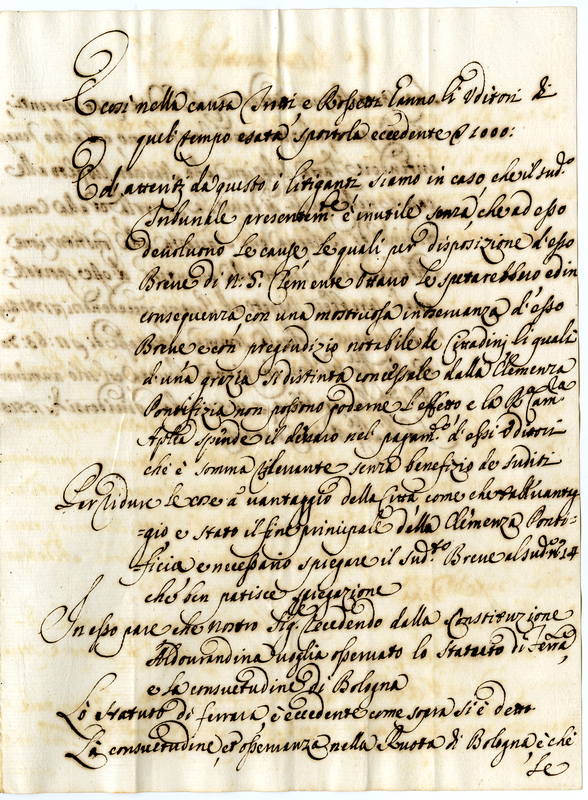 E così nella causa Trotti e Rossetti hanno li Uditori di
quel tempo esatta sportola eccedente @ 1000:
Ed attenti da questo i litiganti siamo in caso che il sud.o
Tribunale presentem.te è inutile senza, che ad esso
devoluono le cause le quali per disposizione d'esso
Breve di N: S: Clemente Ottavo le spetarebbero ed in
consequenza con una mostruosa inosservanza d'esso
Breve e con pregiudizio notabile de Cittadini li quali
d'una grazia si distinta concessale dalla Clemenza
Pontifizia non possono goderne l'effetto e la R.da Cam.a
Aplca spende il denaro nel pagam.to d'essi Uditori
che è somma rilevante senza benefizio de suditi
Per ridure le cose à vantaggio della Città come che tall vantag
=gio e stato il fine principale della Clemenza Ponti=
ficia e necessario spiegare il sud.to Breve al sud.o n.o 14
che ben patisce spiegazione
In esso pare che nostro Sig.re recedendo dalla Constituzione
Aldourandina voglia osservato lo Statuto di Ferra.
e la consuetudine di Bologna
Lo Statuto di Ferrara, è eccedente come sopra si è detto
La consuetudine, et osservanza nella Ruota di Bologna è che
le